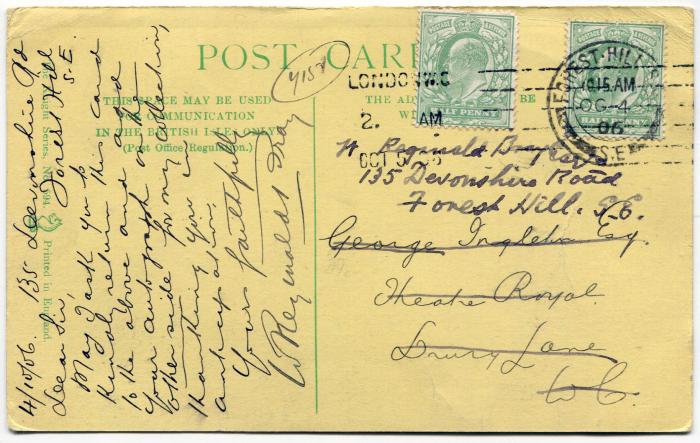 POST CARD
4151
THIS SPACE MAY BE USED
FOR COMMUNICATION
IN THE BRITISH ISLES ONLY
(Post Office Regulation.)
THE AD MAY BE
WRITTEN
LONDON W.C
2. AM
OCT 5 06
FOREST-HILL S.O
10.15 AM
OC 4
06
S.E
HALF PENNY
HALF PENNY
W Reginald Bray Esq
135 Devonshire Road
Forest Hill. S.E.
George Ingleton Esq.
Theatre Royal
Drury Lane
W.C.
135 Devonshire Rd
Forest Hill
S.E.
4/10/06.
Dear Sir
May I ask you to
kindly return this card
to the above and add
your autograph on the
other side for my collection,
thanking you in
anticipation
Yours faithfully
W Reginald Bray
Knight Series, No. 694.
Printed in England.